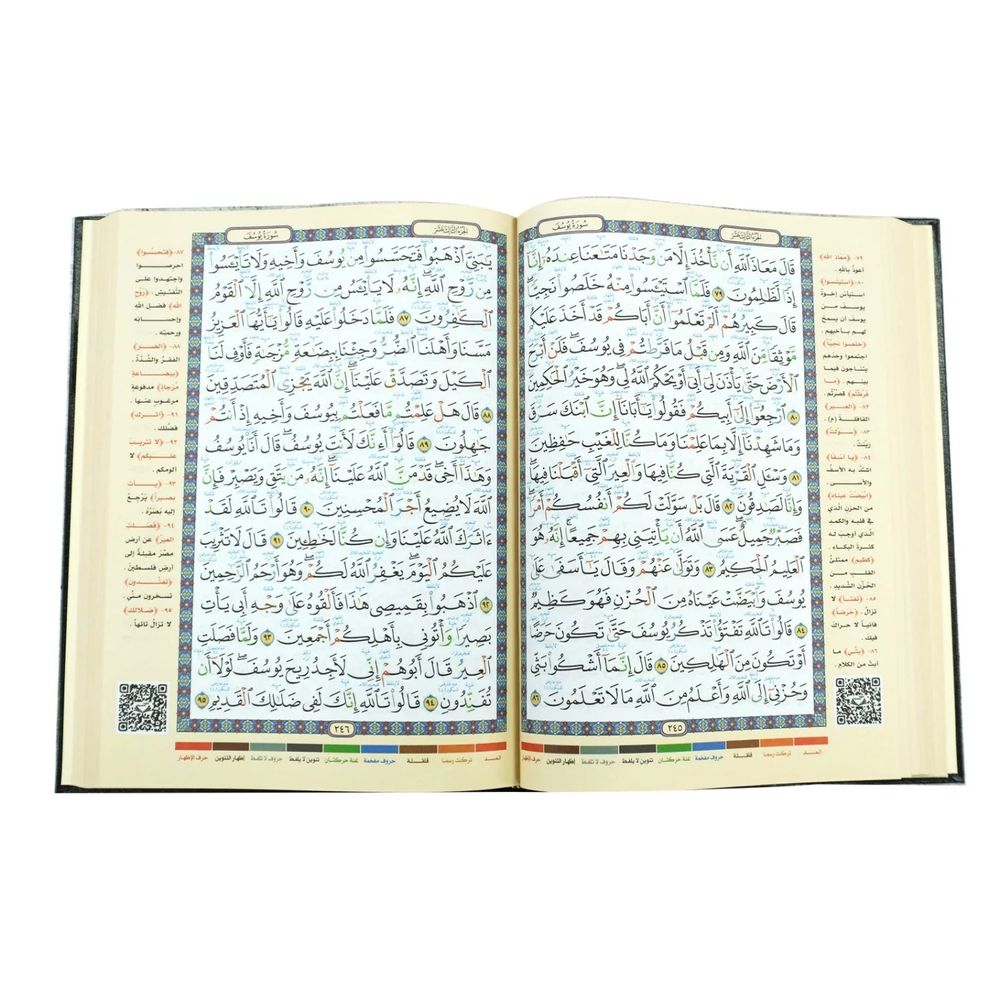 الجُزءُ الثَّالِثَ عَشَرَ
سُورَةُ يُوسُفَ
قَالَ مَعَاذَ ٱللَّهِ أَن نَّأْخُذَ إِلَّا مَن وَجَدْنَا مَتَٰعَنَا عِندَهُۥٓ إِنَّآ
إِذًا لَّظَٰلِمُونَ ٧٩ فَلَمَّا ٱسْتَيْـَٔسُوا۟ مِنْهُ خَلَصُوا۟ نَجِيًّا
قَالَ كَبِيرُهُمْ أَلَمْ تَعْلَمُوٓا۟ أَنَّ أَبَاكُمْ قَدْ أَخَذَ عَلَيْكُم
مَّوْثِقًا مِّنَ ٱللَّهِ وَمِن قَبْلُ مَا فَرَّطتُمْ فِى يُوسُفَ فَلَنْ أَبْرَحَ
ٱلْأَرْضَ حَتَّىٰ يَأْذَنَ لِىٓ أَبِىٓ أَوْ يَحْكُمَ ٱللَّهُ لِى وَهُوَ خَيْرُ ٱلْحَٰكِمِينَ
٨٠ ٱرْجِعُوٓا۟ إِلَىٰٓ أَبِيكُمْ فَقُولُوا۟ يَٰٓأَبَانَآ إِنَّ ٱبْنَكَ سَرَقَ
وَمَا شَهِدْنَآ إِلَّا بِمَا عَلِمْنَا وَمَا كُنَّا لِلْغَيْبِ حَٰفِظِينَ
٨١ وَسْـَٔلِ ٱلْقَرْيَةَ ٱلَّتِى كُنَّا فِيهَا وَٱلْعِيرَ ٱلَّتِىٓ أَقْبَلْنَا فِيهَا
وَإِنَّا لَصَٰدِقُونَ ٨٢ قَالَ بَلْ سَوَّلَتْ لَكُمْ أَنفُسُكُمْ أَمْرًا
فَصَبْرٌ جَمِيلٌ عَسَى ٱللَّهُ أَن يَأْتِيَنِى بِهِمْ جَمِيعًا إِنَّهُۥ هُوَ
ٱلْعَلِيمُ ٱلْحَكِيمُ ٨٣ وَتَوَلَّىٰ عَنْهُمْ وَقَالَ يَٰٓأَسَفَىٰ عَلَىٰ
يُوسُفَ وَٱبْيَضَّتْ عَيْنَاهُ مِنَ ٱلْحُزْنِ فَهُوَ كَظِيمٌ
٨٤ قَالُوا۟ تَٱللَّهِ تَفْتَؤُا۟ تَذْكُرُ يُوسُفَ حَتَّىٰ تَكُونَ حَرَضًا
أَوْ تَكُونَ مِنَ ٱلْهَٰلِكِينَ ٨٥ قَالَ إِنَّمَآ أَشْكُوا۟ بَثِّى
وَحُزْنِىٓ إِلَى ٱللَّهِ وَأَعْلَمُ مِنَ ٱللَّهِ مَا لَا تَعْلَمُونَ ٨٦
٢٤٥
٧٩- (معاذ الله)
أعوذ بالله.
٨٠- (استيئسوا)
استيأس إخوة
يوسف من
يوسف أن يسمح
لهم بأخيهم.
(خلصوا نجيًا)
اجتمعوا وحدهم
يتناجون فيما
بينهم. (ما
فرطتم) قصرتم.
٨٢- (العير)
القافلة (م).
٨٣- (سولت)
زينت.
٨٤- (يا أسفا)
اشتد به الأسف
والأسى.
(ابيضت عيناه)
من الحزن الذي
في قلبه والكمد
الذي أوجب له
كثرة البكاء.
(كظيم) ممتلئ
القلب من
الحزن الشديد.
٨٥- (تفتأ) لا
تزال. (حرضاً)
فانياً لا حراك
فيك.
٨٦- (بثي) ما
أبث من الكلام.
المد
تركت رسما
قلقلة
حروف مفخمة
غنة حركتان
تنوين لا يلفظ
حروف لا تلفظ
إظهار التنوين
حرف الإظهار
الجُزءُ الثَّالِثَ عَشَرَ
سُورَةُ يُوسُفَ
يَٰبَنِىَّ ٱذْهَبُوا۟ فَتَحَسَّسُوا۟ مِن يُوسُفَ وَأَخِيهِ وَلَا تَا۟يْـَٔسُوا۟
مِن رَّوْحِ ٱللَّهِ إِنَّهُۥ لَا يَا۟يْـَٔسُ مِن رَّوْحِ ٱللَّهِ إِلَّا ٱلْقَوْمُ
ٱلْكَٰفِرُونَ ٨٧ فَلَمَّا دَخَلُوا۟ عَلَيْهِ قَالُوا۟ يَٰٓأَيُّهَا ٱلْعَزِيزُ
مَسَّنَا وَأَهْلَنَا ٱلضُّرُّ وَجِئْنَا بِبِضَٰعَةٍ مُّزْجَىٰةٍ فَأَوْفِ لَنَا
ٱلْكَيْلَ وَتَصَدَّقْ عَلَيْنَآ إِنَّ ٱللَّهَ يَجْزِى ٱلْمُتَصَدِّقِينَ
٨٨ قَالَ هَلْ عَلِمْتُم مَّا فَعَلْتُم بِيُوسُفَ وَأَخِيهِ إِذْ أَنتُمْ
جَٰهِلُونَ ٨٩ قَالُوٓا۟ أَءِنَّكَ لَأَنتَ يُوسُفُ قَالَ أَنَا۠ يُوسُفُ
وَهَٰذَآ أَخِى قَدْ مَنَّ ٱللَّهُ عَلَيْنَآ إِنَّهُۥ مَن يَتَّقِ وَيَصْبِرْ فَإِنَّ
ٱللَّهَ لَا يُضِيعُ أَجْرَ ٱلْمُحْسِنِينَ ٩٠ قَالُوا۟ تَٱللَّهِ لَقَدْ
ءَاثَرَكَ ٱللَّهُ عَلَيْنَا وَإِن كُنَّا لَخَٰطِـِٔينَ ٩١ قَالَ لَا تَثْرِيبَ
عَلَيْكُمُ ٱلْيَوْمَ يَغْفِرُ ٱللَّهُ لَكُمْ وَهُوَ أَرْحَمُ ٱلرَّٰحِمِينَ
٩٢ ٱذْهَبُوا۟ بِقَمِيصِى هَٰذَا فَأَلْقُوهُ عَلَىٰ وَجْهِ أَبِى يَأْتِ
بَصِيرًا وَأْتُونِى بِأَهْلِكُمْ أَجْمَعِينَ ٩٣ وَلَمَّا فَصَلَتِ
ٱلْعِيرُ قَالَ أَبُوهُمْ إِنِّى لَأَجِدُ رِيحَ يُوسُفَ لَوْلَآ أَن
تُفَنِّدُونِ ٩٤ قَالُوا۟ تَٱللَّهِ إِنَّكَ لَفِى ضَلَٰلِكَ ٱلْقَدِيمِ ٩٥
٢٤٦
٨٧- (فتحسسوا)
احرصوا
واجتهدوا على
التفتيش. (روح
الله) فضل الله
وإحسانه
ورحمته.
٨٨- (الضر)
الفقر والشدة.
(ببضاعة
مزجاة) مدفوعة
مرغوب عنها.
٩١- (آثرك)
فضلك.
٩٢- (لا تثريب
عليكم) لا
ألومكم.
٩٣- (يأت
بصيراً) يرجع
إليه بصره.
٩٤- (فصلت
العير) عن أرض
مصر مقبلة إلى
أرض فلسطين.
(تفندون)
تسخرون مني.
٩٥- (ضلالك)
لا تزال تائهاً.
المد
تركت رسما
قلقلة
حروف مفخمة
غنة حركتان
تنوين لا يلفظ
حروف لا تلفظ
إظهار التنوين
حرف الإظهار